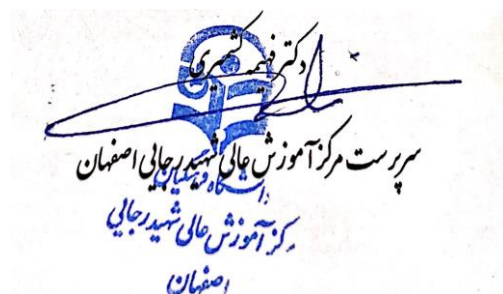 دکتر فهیمه کشمیری
سرپرست مرکز آموزش عالی شهید رجایی اصفهان
دانشگاه فرهنگیان
مرکز آموزش عالی شهید رجایی
اصفهان